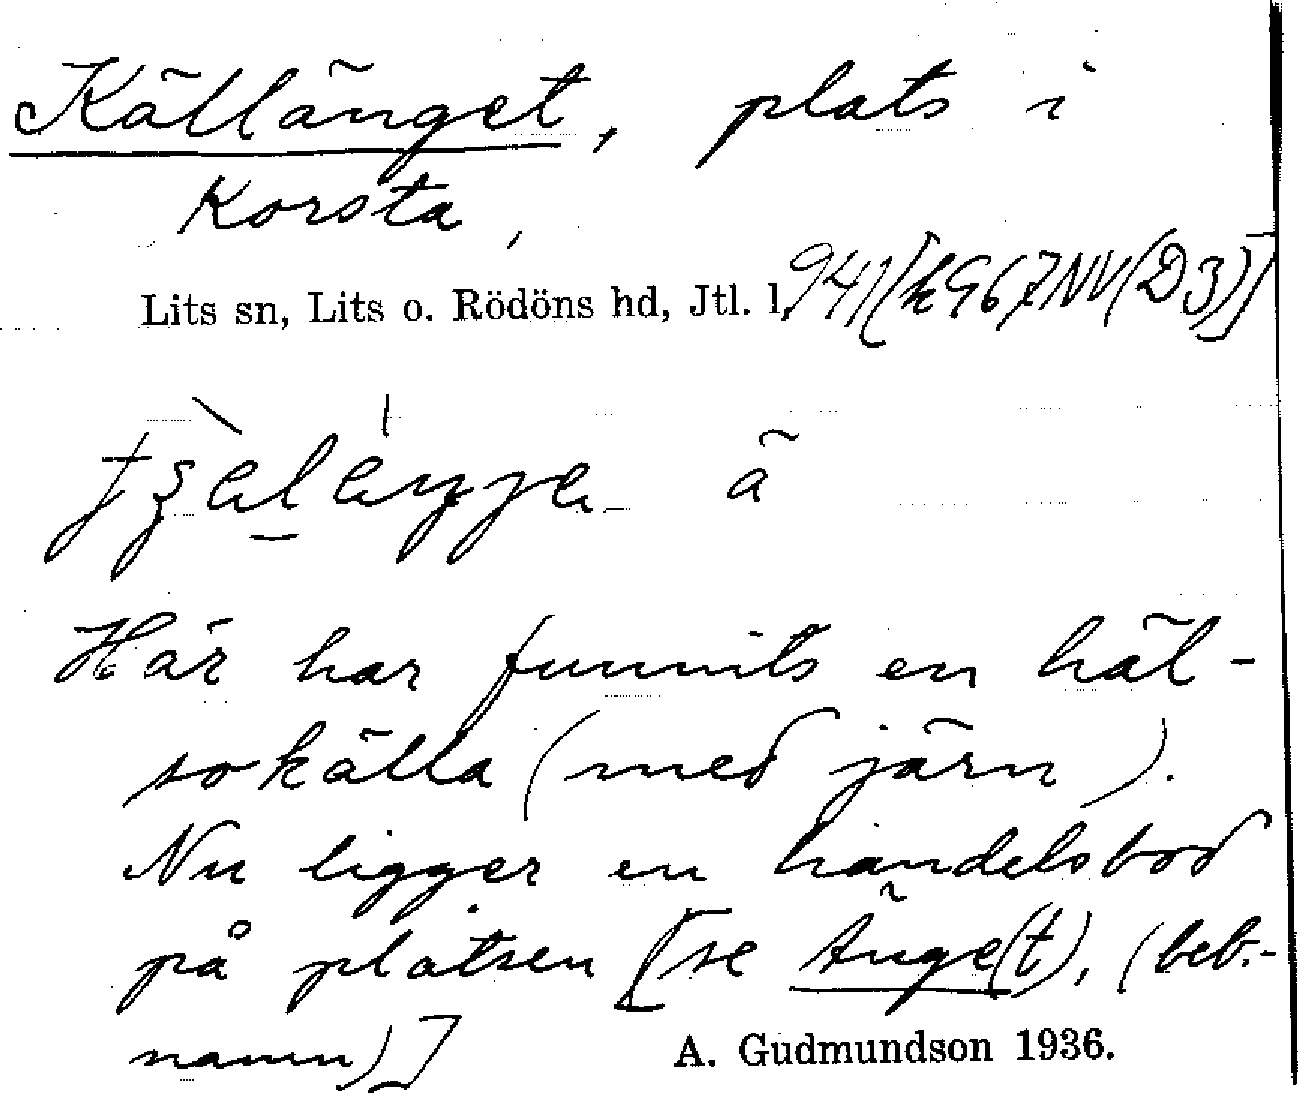 Källänget, plats i
Korsta,
Lits sn, Lits o. Rödöns hd, Jtl. l, 941 [k 967 NV (D3)]
å
Här har funnits en häl-
sokälla (med järn).
Nu ligger en handelsbod
på platsen [se Änge(t), (beb.-
namn)]
A. Gudmundson 1936.